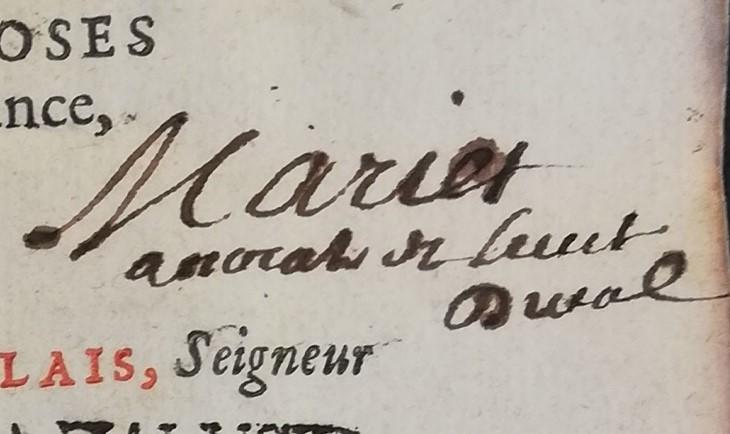 OSES
nce,
Mariet
avocat
Duval
LAIS, Seigneur